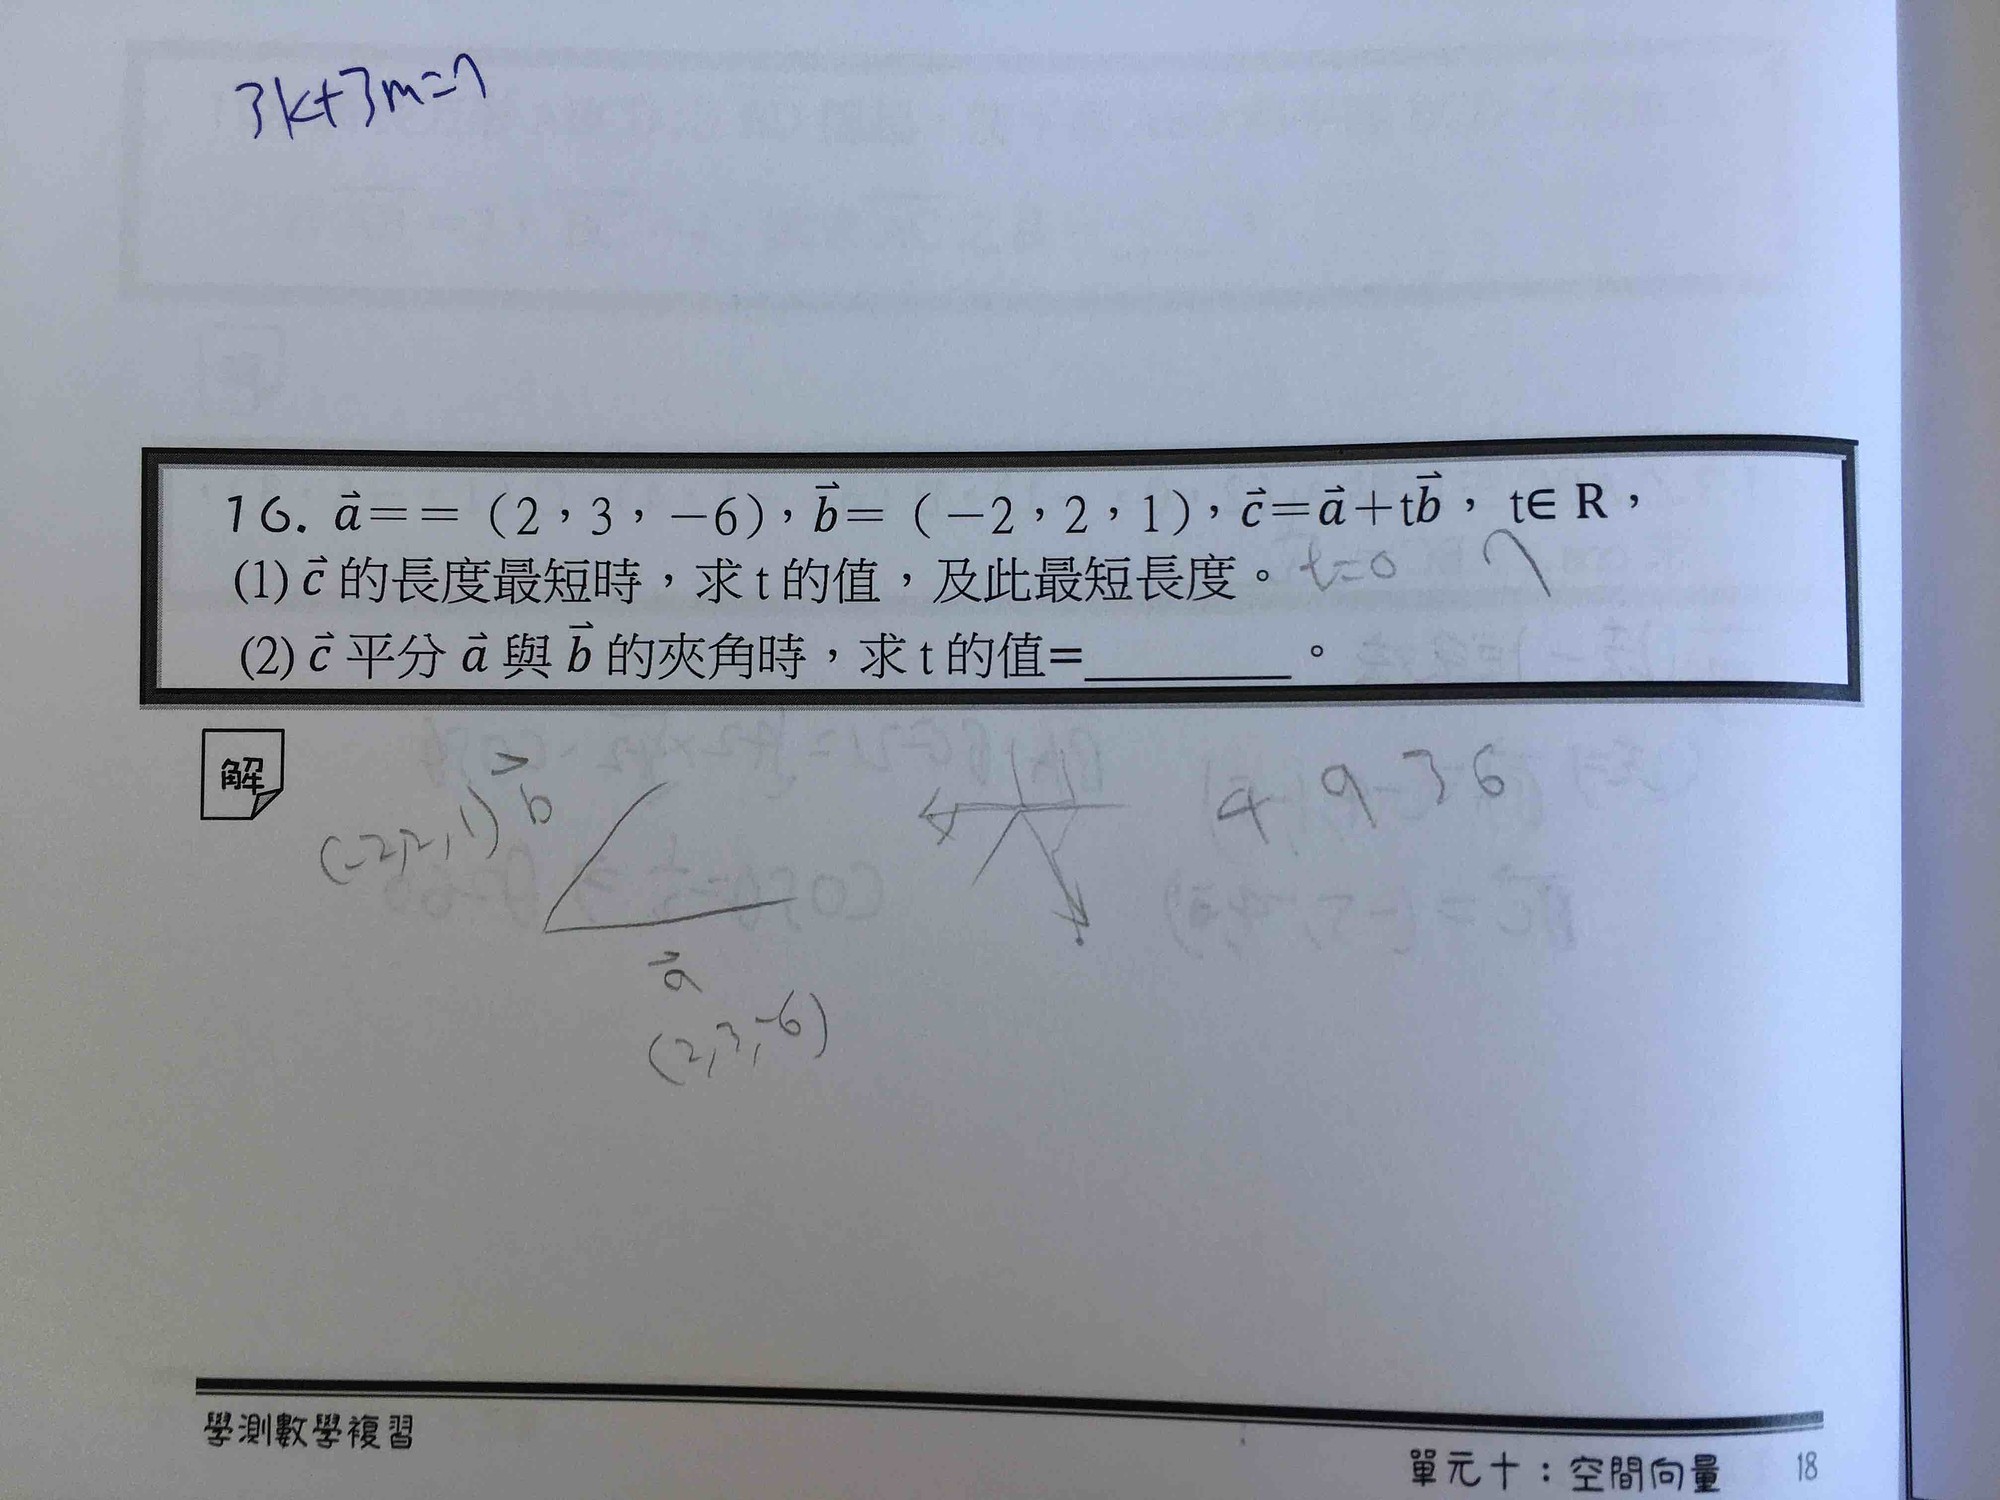 3k+3m=7
16. a⃗==（2，3，−6），b⃗=（−2，2，1），c⃗=a⃗+tb⃗， t∈ R，
(1) c⃗ 的長度最短時，求 t 的值，及此最短長度。 t=0 7
(2) c⃗ 平分 a⃗ 與 b⃗ 的夾角時，求 t 的值=________。
解
(-2,2,1) b⃗
4 9 36
a⃗
(2,3,-6)
學測數學複習
單元十：空間向量 18